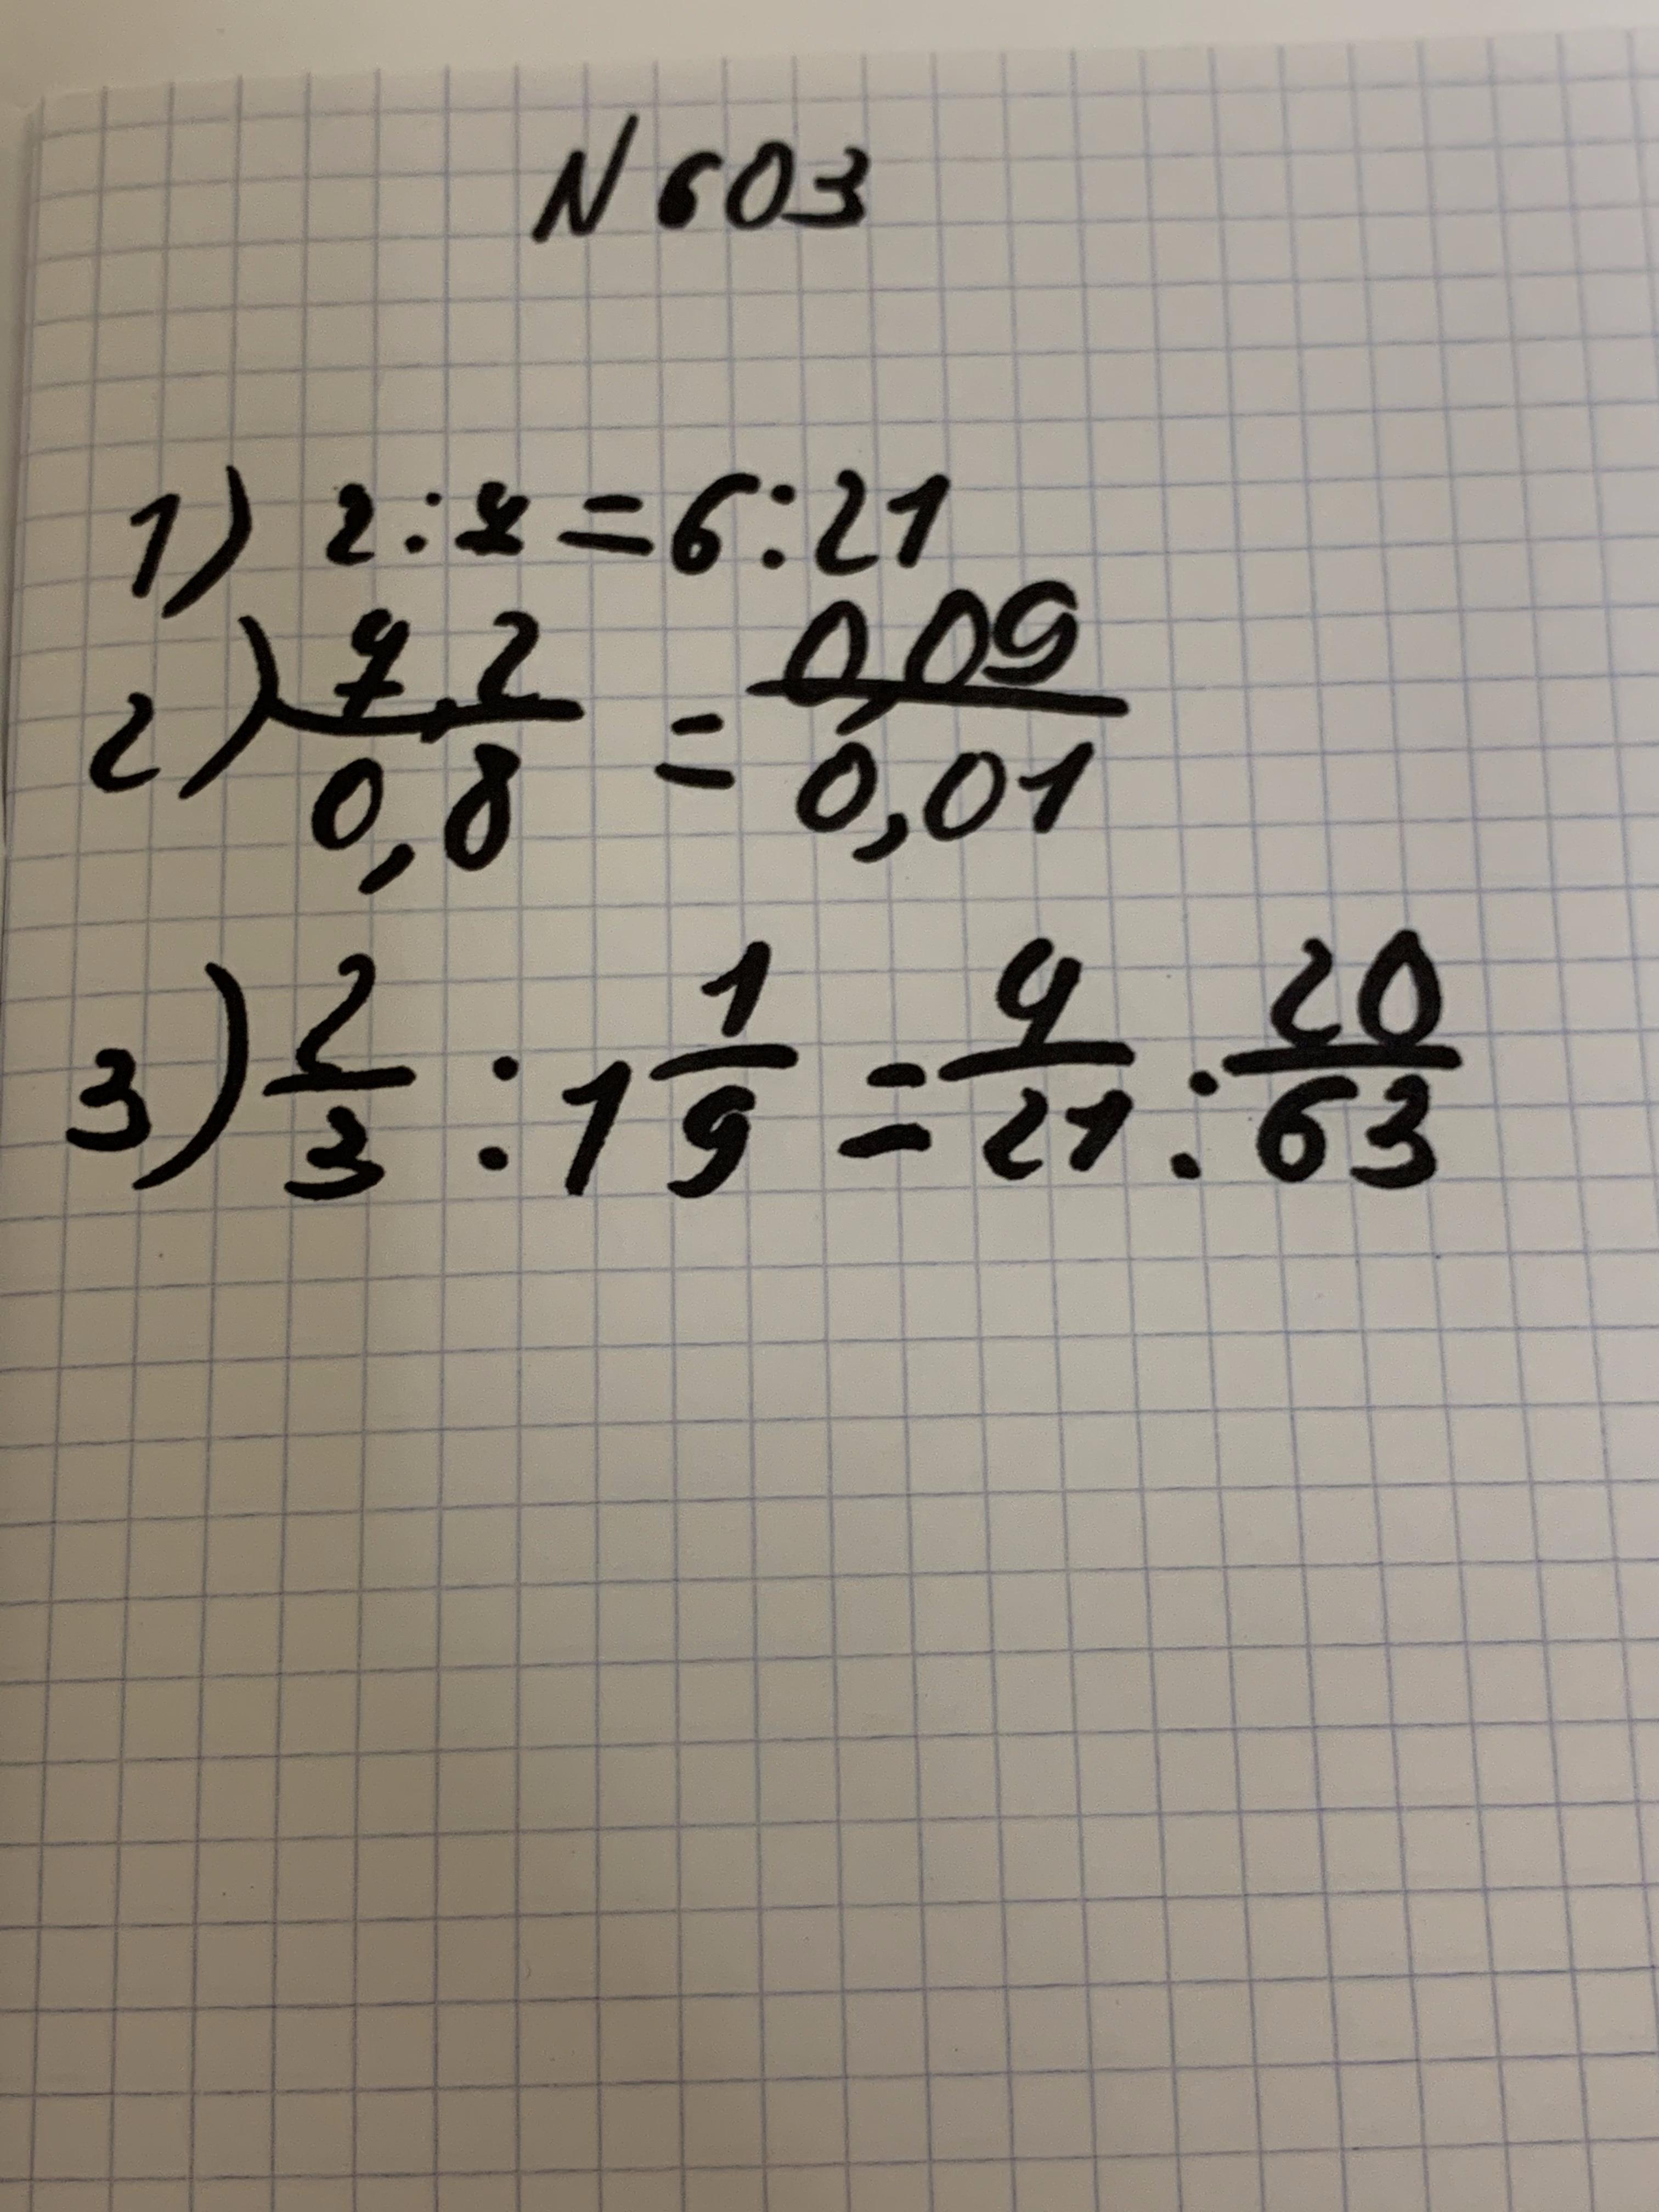 N 603
1) 2 : 7 = 6 : 21
2) 7,2/0,8 = 0,09/0,01
3) 2/3 : 1 1/9 = 4/21 : 20/63